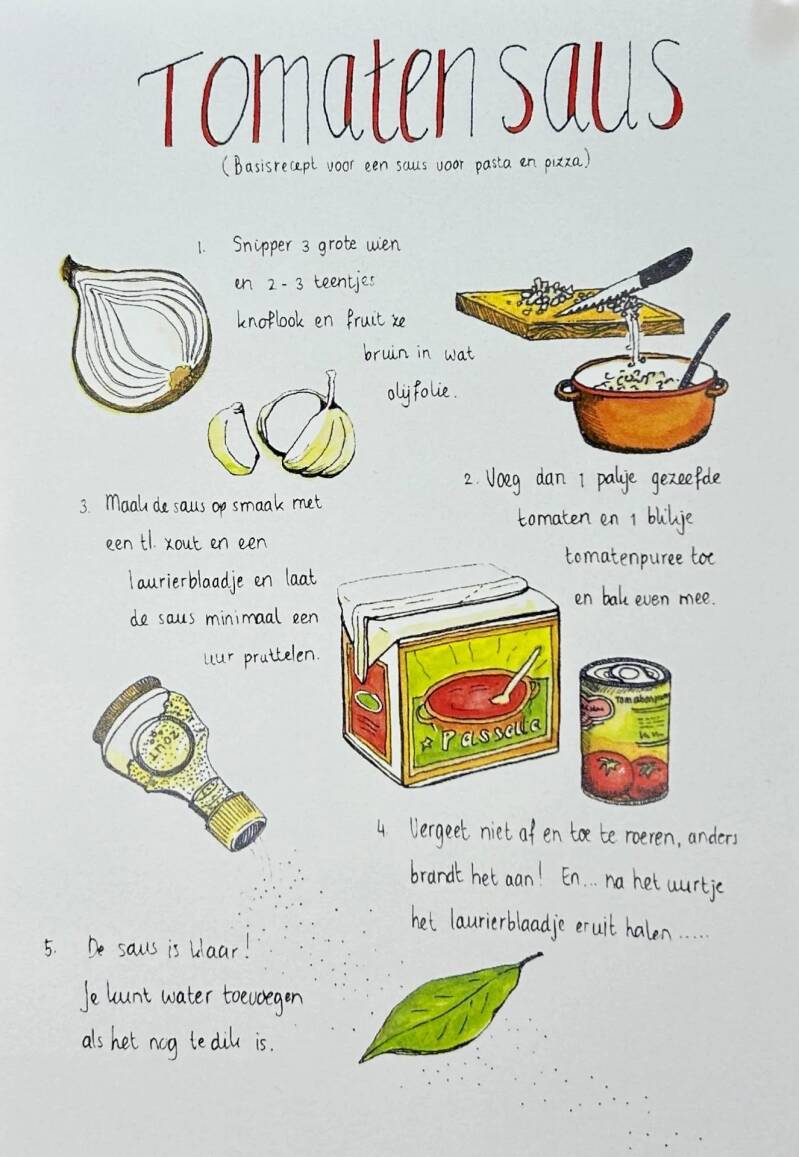 Tomatensaus
(Basisrecept voor een saus voor pasta en pizza)
1. Snipper 3 grote uien
en 2-3 teentjes
knoflook en fruit ze
bruin in wat
olijfolie.
2. Voeg dan 1 pakje gezeefde
tomaten en 1 blikje
tomatenpuree toe
en bak even mee.
3. Maak de saus op smaak met
een tl. zout en een
laurierblaadje en laat
de saus minimaal een
uur pruttelen.
Passata
ZOUT
4. Vergeet niet af en toe te roeren, anders
brandt het aan! En... na het uurtje
het laurierblaadje eruit halen.....
5. De saus is klaar!
Je kunt water toevoegen
als het nog te dik is.